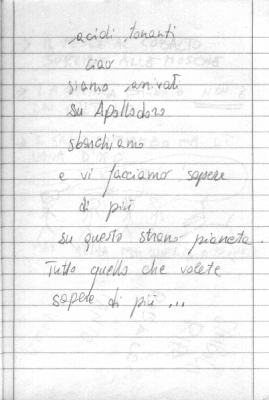 acidi, tonanti
ciao
siamo arrivati
su Apollodoro
sbarchiamo
e vi facciamo sapere
di più
su questo strano pianeta.
Tutto quello che volete
sapere di più ...